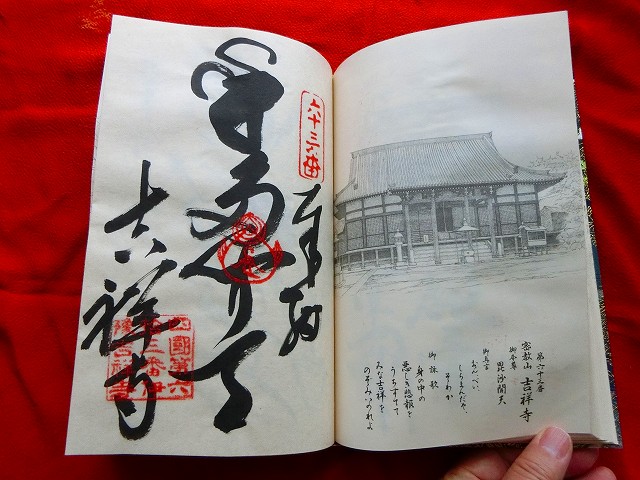 第六十三番
密教山 吉祥寺
御本尊
毘沙聞天
御真言
おんべい
しらまんだや
そわか
御詠歌
身の中の
悪しき悲報を
うちすてて
みな吉祥を
のぞみいのれよ
六十三番
奉納
毘沙門天
吉祥寺
四國第六
十三番伊
豫吉祥寺